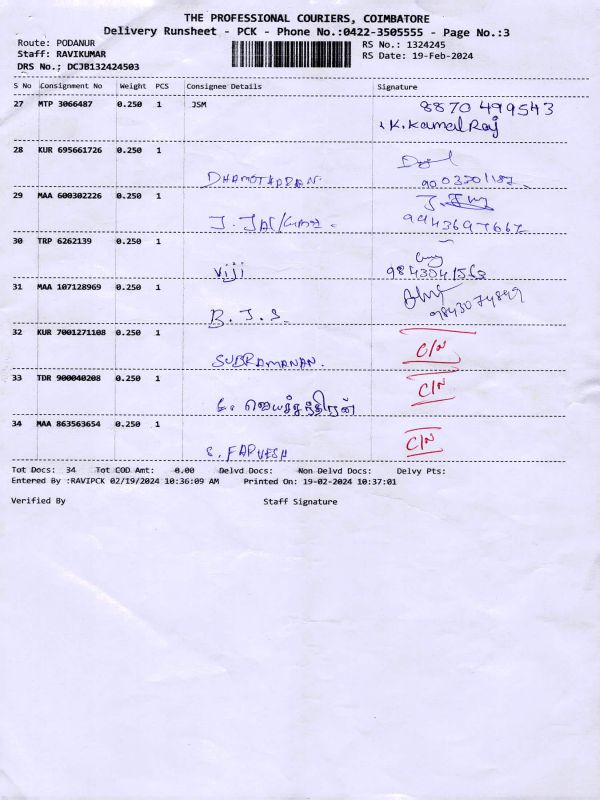 THE PROFESSIONAL COURIERS, COIMBATORE
Delivery Runsheet - PCK - Phone No.:0422-3505555 - Page No.:3
Route: PODANUR RS No.: 1324245
Staff: RAVIKUMAR RS Date: 19-Feb-2024
DRS No.; DCJB132424503
S No Consignment No Weight PCS Consignee Details Signature
27 MTP 3066487 0.250 1 JSM 8870 499543
K. Kamal Raj
28 KUR 695661726 0.250 1
DHAMOTHARAN.
29 MAA 600302226 0.250 1
9943697667
30 TRP 6262139 0.250 1
Viji 9843041563
31 MAA 107128969 0.250 1
B. J. S. 9843074849
32 KUR 7001271108 0.250 1 C/N
SUBRAMANAN.
33 TDR 900040208 0.250 1 C/N
34 MAA 863563654 0.250 1 C/N
S. FARVESH
Tot Docs: 34 Tot COD Amt: 0.00 Delvd Docs: Non Delvd Docs: Delvy Pts:
Entered By :RAVIPCK 02/19/2024 10:36:09 AM Printed On: 19-02-2024 10:37:01
Verified By Staff Signature